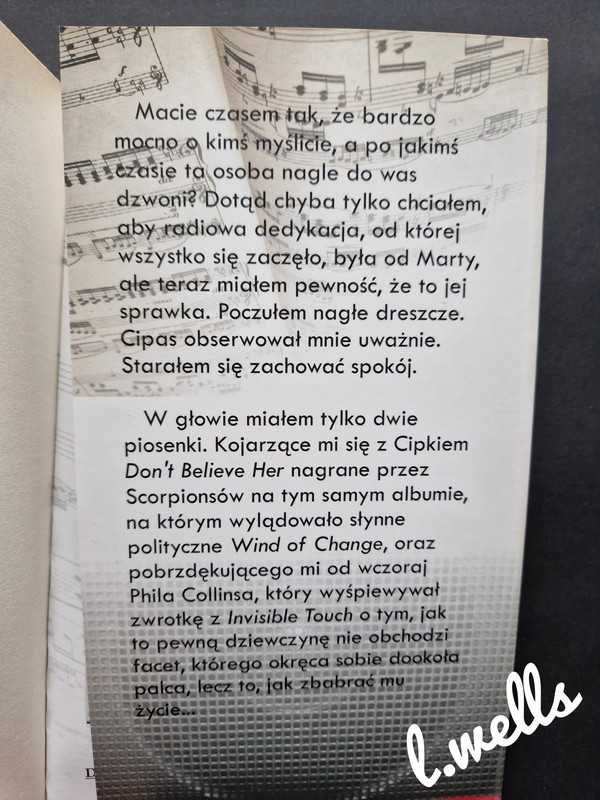 Macie czasem tak, że bardzo
mocno o kimś myślicie, a po jakimś
czasie ta osoba nagle do was
dzwoni? Dotąd chyba tylko chciałem,
aby radiowa dedykacja, od której
wszystko się zaczęło, była od Marty,
ale teraz miałem pewność, że to jej
sprawka. Poczułem nagłe dreszcze.
Cipas obserwował mnie uważnie.
Starałem się zachować spokój.
W głowie miałem tylko dwie
piosenki. Kojarzące mi się z Cipkiem
Don't Believe Her nagrane przez
Scorpionsów na tym samym albumie,
na którym wylądowało słynne
polityczne Wind of Change, oraz
pobrzdękującego mi od wczoraj
Phila Collinsa, który wyśpiewywał
zwrotkę z Invisible Touch o tym, jak
to pewną dziewczynę nie obchodzi
facet, którego okręca sobie dookoła
palca, lecz to, jak zbabrać mu
życie...
D
l.wells